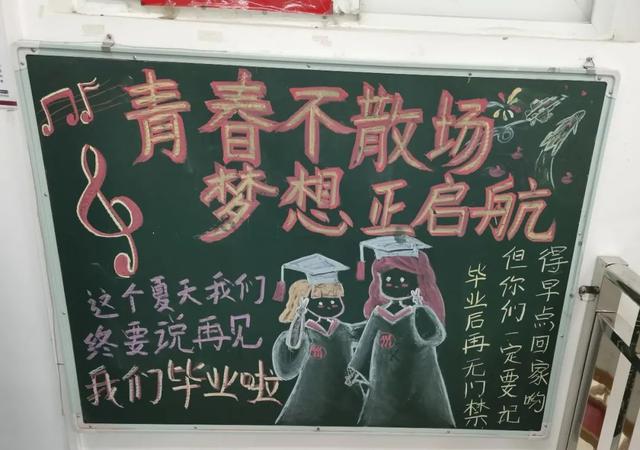 青春不散场
梦想正启航
这个夏天我们
终要说再见
我们毕业啦
毕业后再无门禁
但你们一定要记
得早点回家哟